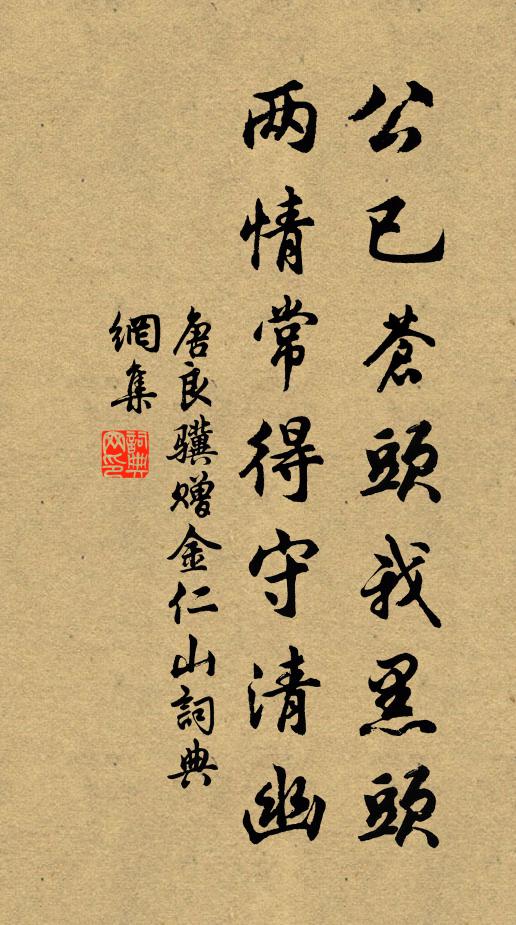 公已蒼頭我黑頭
两情常得守清幽
唐良骥赠金仁山詞典
網集
詞典網印